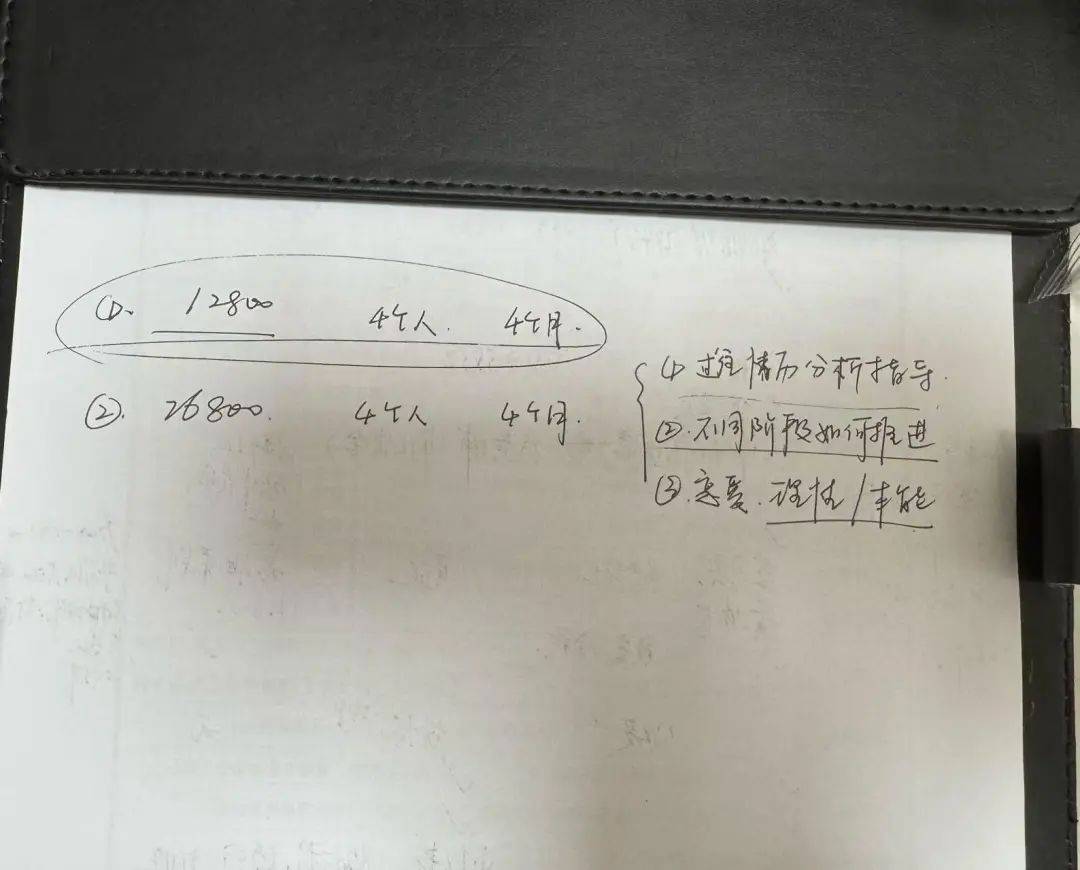 ①. 12800 4个人. 4个月.
②. 26800. 4个人 4个月.
① 过往情历分析指导.
②. 不同阶段如何推进
③. 恋爱. 理性/本能